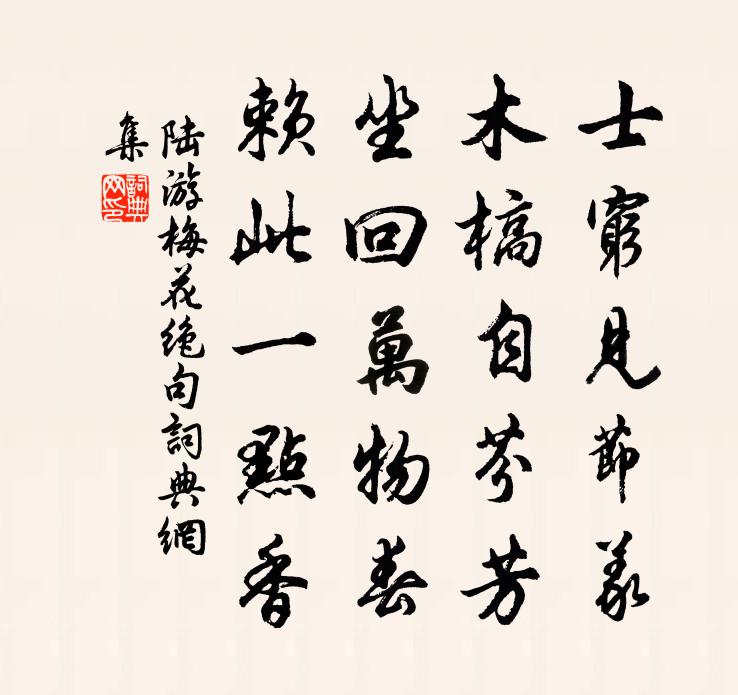 士窮見節義
木槁自芬芳
坐回萬物春
賴此一點香
陸游梅花绝句詞典網
集
詞典
网印